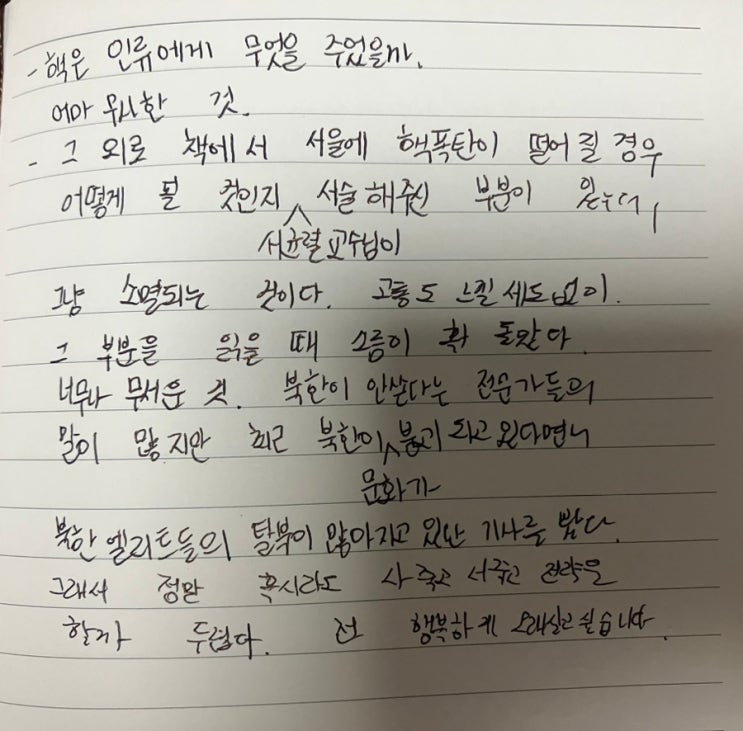 - 핵은 인류에게 무엇을 주었을까.
어마 무시한 것.
- 그 외로 책에서 서울에 핵폭탄이 떨어질 경우
어떻게 될 것인지 서술해주신 부분이 있는데,
서균렬 교수님이
그냥 소멸되는 것이다. 고통도 느낄 세도 없이.
그 부분을 읽을 때 소름이 확 돋았다.
너무나 무서운 것. 북한이 안쏜다는 전문가들의
말이 많지만 최근 북한이 붕괴 되고 있다면서
문화가
북한 엘리트들의 탈북이 많아지고 있단 기사를 봤다.
그래서 정말 혹시라도 사 죽고 서죽고 전략을
할까 두렵다. 전 행복하게 오래살고 싶습니다.